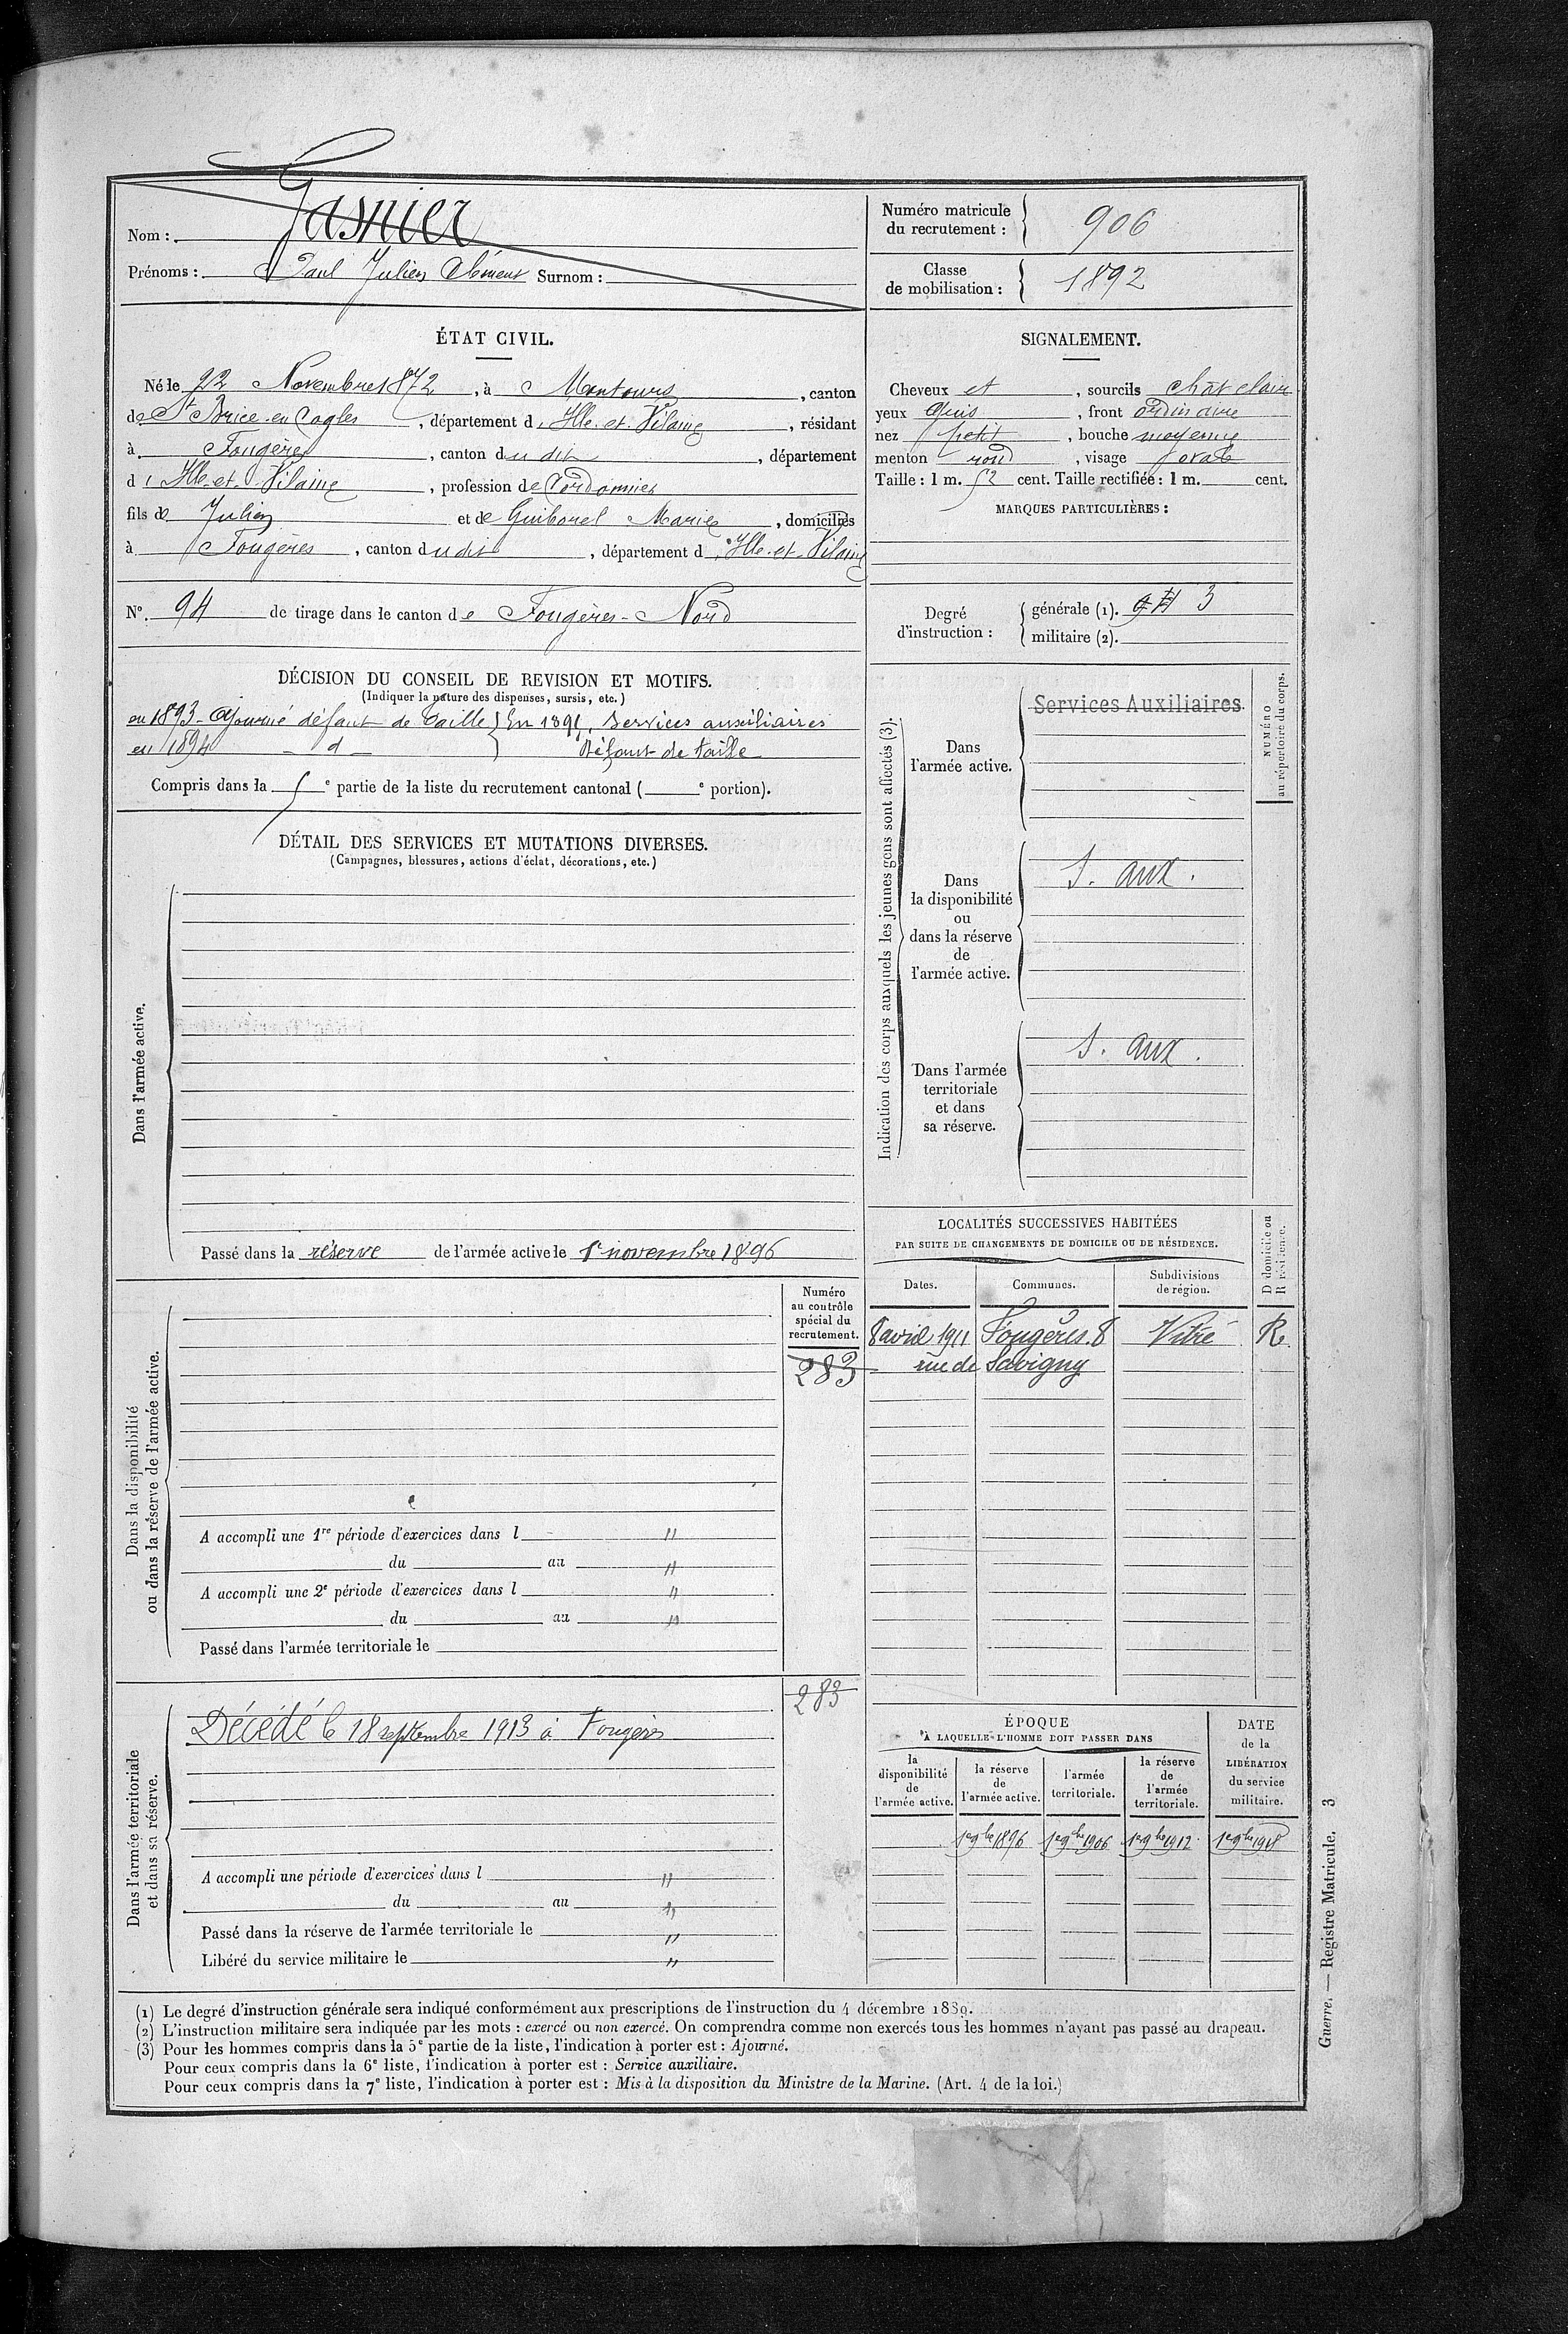 Nom : Gasnier
Prénoms : Paul Julien Clément Surnom :
Numéro matricule
du recrutement : 906
Classe
de mobilisation : 1892
ÉTAT CIVIL.
Né le 22 Novembre 1872, à Montours, canton
de St Brice-en-Cogles, département d'Ille-et-Vilaine, résidant
à Fougères, canton dudit, département
d'Ille-et-Vilaine, profession de Cordonnier
fils de Julien et de Guibourel Marie, domiciliés
à Fougères, canton dudit, département d'Ille-et-Vilaine
No. 94 de tirage dans le canton de Fougères-Nord
SIGNALEMENT.
Cheveux et, sourcils chât clair
yeux gris, front ordinaire
nez petit, bouche moyenne
menton rond, visage ovale
Taille : 1 m. 52 cent. Taille rectifiée : 1 m. cent.
MARQUES PARTICULIÈRES :
Degré
d'instruction :
générale (1). 3
militaire (2).
DÉCISION DU CONSEIL DE REVISION ET MOTIFS.
(Indiquer la nature des dispenses, sursis, etc.)
en 1893 - Ajourné défaut de taille } En 1895, Services auxiliaires
en 1894 - d - } Défaut de taille
Compris dans la 5e partie de la liste du recrutement cantonal ( e portion).
DÉTAIL DES SERVICES ET MUTATIONS DIVERSES.
(Campagnes, blessures, actions d'éclat, décorations, etc.)
Dans l'armée active.
Passé dans la réserve de l'armée active le 1er novembre 1896
Indication des corps auxquels les jeunes gens sont affectés (3).
Dans
l'armée active.
Services Auxiliaires
NUMÉRO
au répertoire du corps.
Dans
la disponibilité
ou
dans la réserve
de
l'armée active.
S. aux.
Dans l'armée
territoriale
et dans
sa réserve.
S. aux.
LOCALITÉS SUCCESSIVES HABITÉES
PAR SUITE DE CHANGEMENTS DE DOMICILE OU DE RÉSIDENCE.
D domicile ou
R résidence.
Dates. Communes. Subdivisions
de région.
8 avril 1911 Fougères. 8 Vitré R.
rue de Savigny
Dans la disponibilité
ou dans la réserve de l'armée active.
Numéro
au contrôle
spécial du
recrutement.
283
A accompli une 1re période d'exercices dans l "
du au "
A accompli une 2e période d'exercices dans l "
du au "
Passé dans l'armée territoriale le
Dans l'armée territoriale
et dans sa réserve.
283
Décédé le 18 septembre 1913 à Fougères
A accompli une période d'exercices dans l "
du au "
Passé dans la réserve de l'armée territoriale le "
Libéré du service militaire le "
ÉPOQUE
À LAQUELLE L'HOMME DOIT PASSER DANS
DATE
de la
LIBÉRATION
du service
militaire.
la
disponibilité
de
l'armée active.
la réserve
de
l'armée active.
l'armée
territoriale.
la réserve
de
l'armée
territoriale.
1er 9bre 1896 1er 9bre 1906 1er 9bre 1912 1er 9bre 1918
(1) Le degré d'instruction générale sera indiqué conformément aux prescriptions de l'instruction du 4 décembre 1889.
(2) L'instruction militaire sera indiquée par les mots : exercé ou non exercé. On comprendra comme non exercés tous les hommes n'ayant pas passé au drapeau.
(3) Pour les hommes compris dans la 5e partie de la liste, l'indication à porter est : Ajourné.
Pour ceux compris dans la 6e liste, l'indication à porter est : Service auxiliaire.
Pour ceux compris dans la 7e liste, l'indication à porter est : Mis à la disposition du Ministre de la Marine. (Art. 4 de la loi.)
Guerre. — Registre Matricule. 3